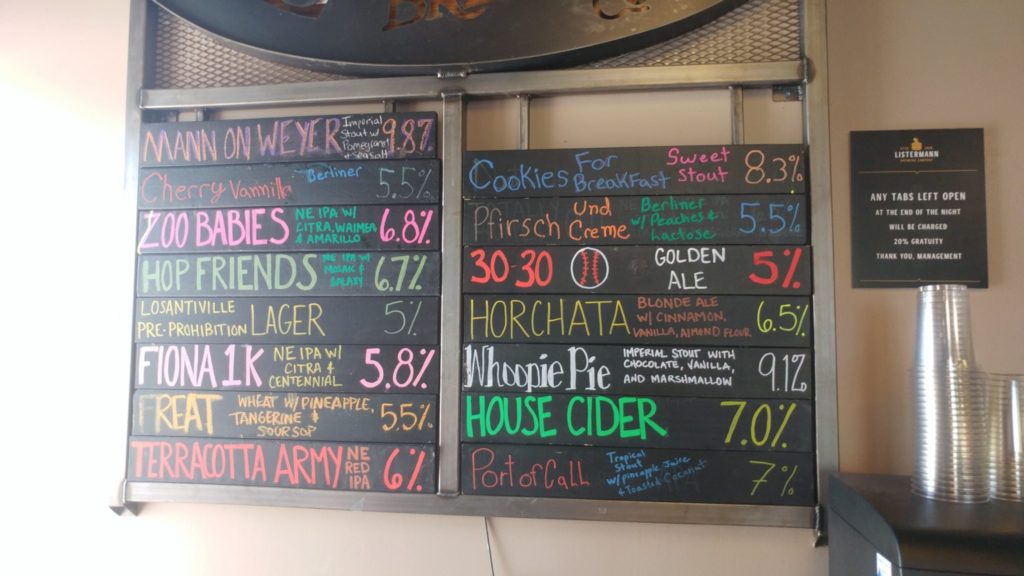 Brewing Co.
MANN ON WEYER Imperial Stout w/ Pomegranate & sea salt 9.8%
Cherry Vannilla Berliner 5.5%
ZOO BABIES NE IPA W/ CITRA, WAIMEA & AMARILLO 6.8%
HOP FRIENDS NE IPA W/ MOSAIC & GALAXY 6.7%
LOSANTIVILLE PRE-PROHIBITION LAGER 5%
FIONA 1K NE IPA W/ CITRA & CENTENNIAL 5.8%
FREAT WHEAT W/ PINEAPPLE, TANGERINE & SOURSOP 5.5%
TERRACOTTA ARMY NE RED IPA 6%
Cookies For Breakfast Sweet Stout 8.3%
Pfirsch Und Creme Berliner w/ Peaches & Lactose 5.5%
30-30 GOLDEN ALE 5%
HORCHATA BLONDE ALE W/ CINNAMON, VANILLA, ALMOND FLOUR 6.5%
Whoopie Pie IMPERIAL STOUT WITH CHOCOLATE, VANILLA, AND MARSHMALLOW 9.1%
HOUSE CIDER 7.0%
Port of Call Tropical Stout w/ pineapple Juice & Toasted Coconut 7%
LISTERMANN
BREWING COMPANY
ANY TABS LEFT OPEN
AT THE END OF THE NIGHT
WILL BE CHARGED
20% GRATUITY
THANK YOU, MANAGEMENT